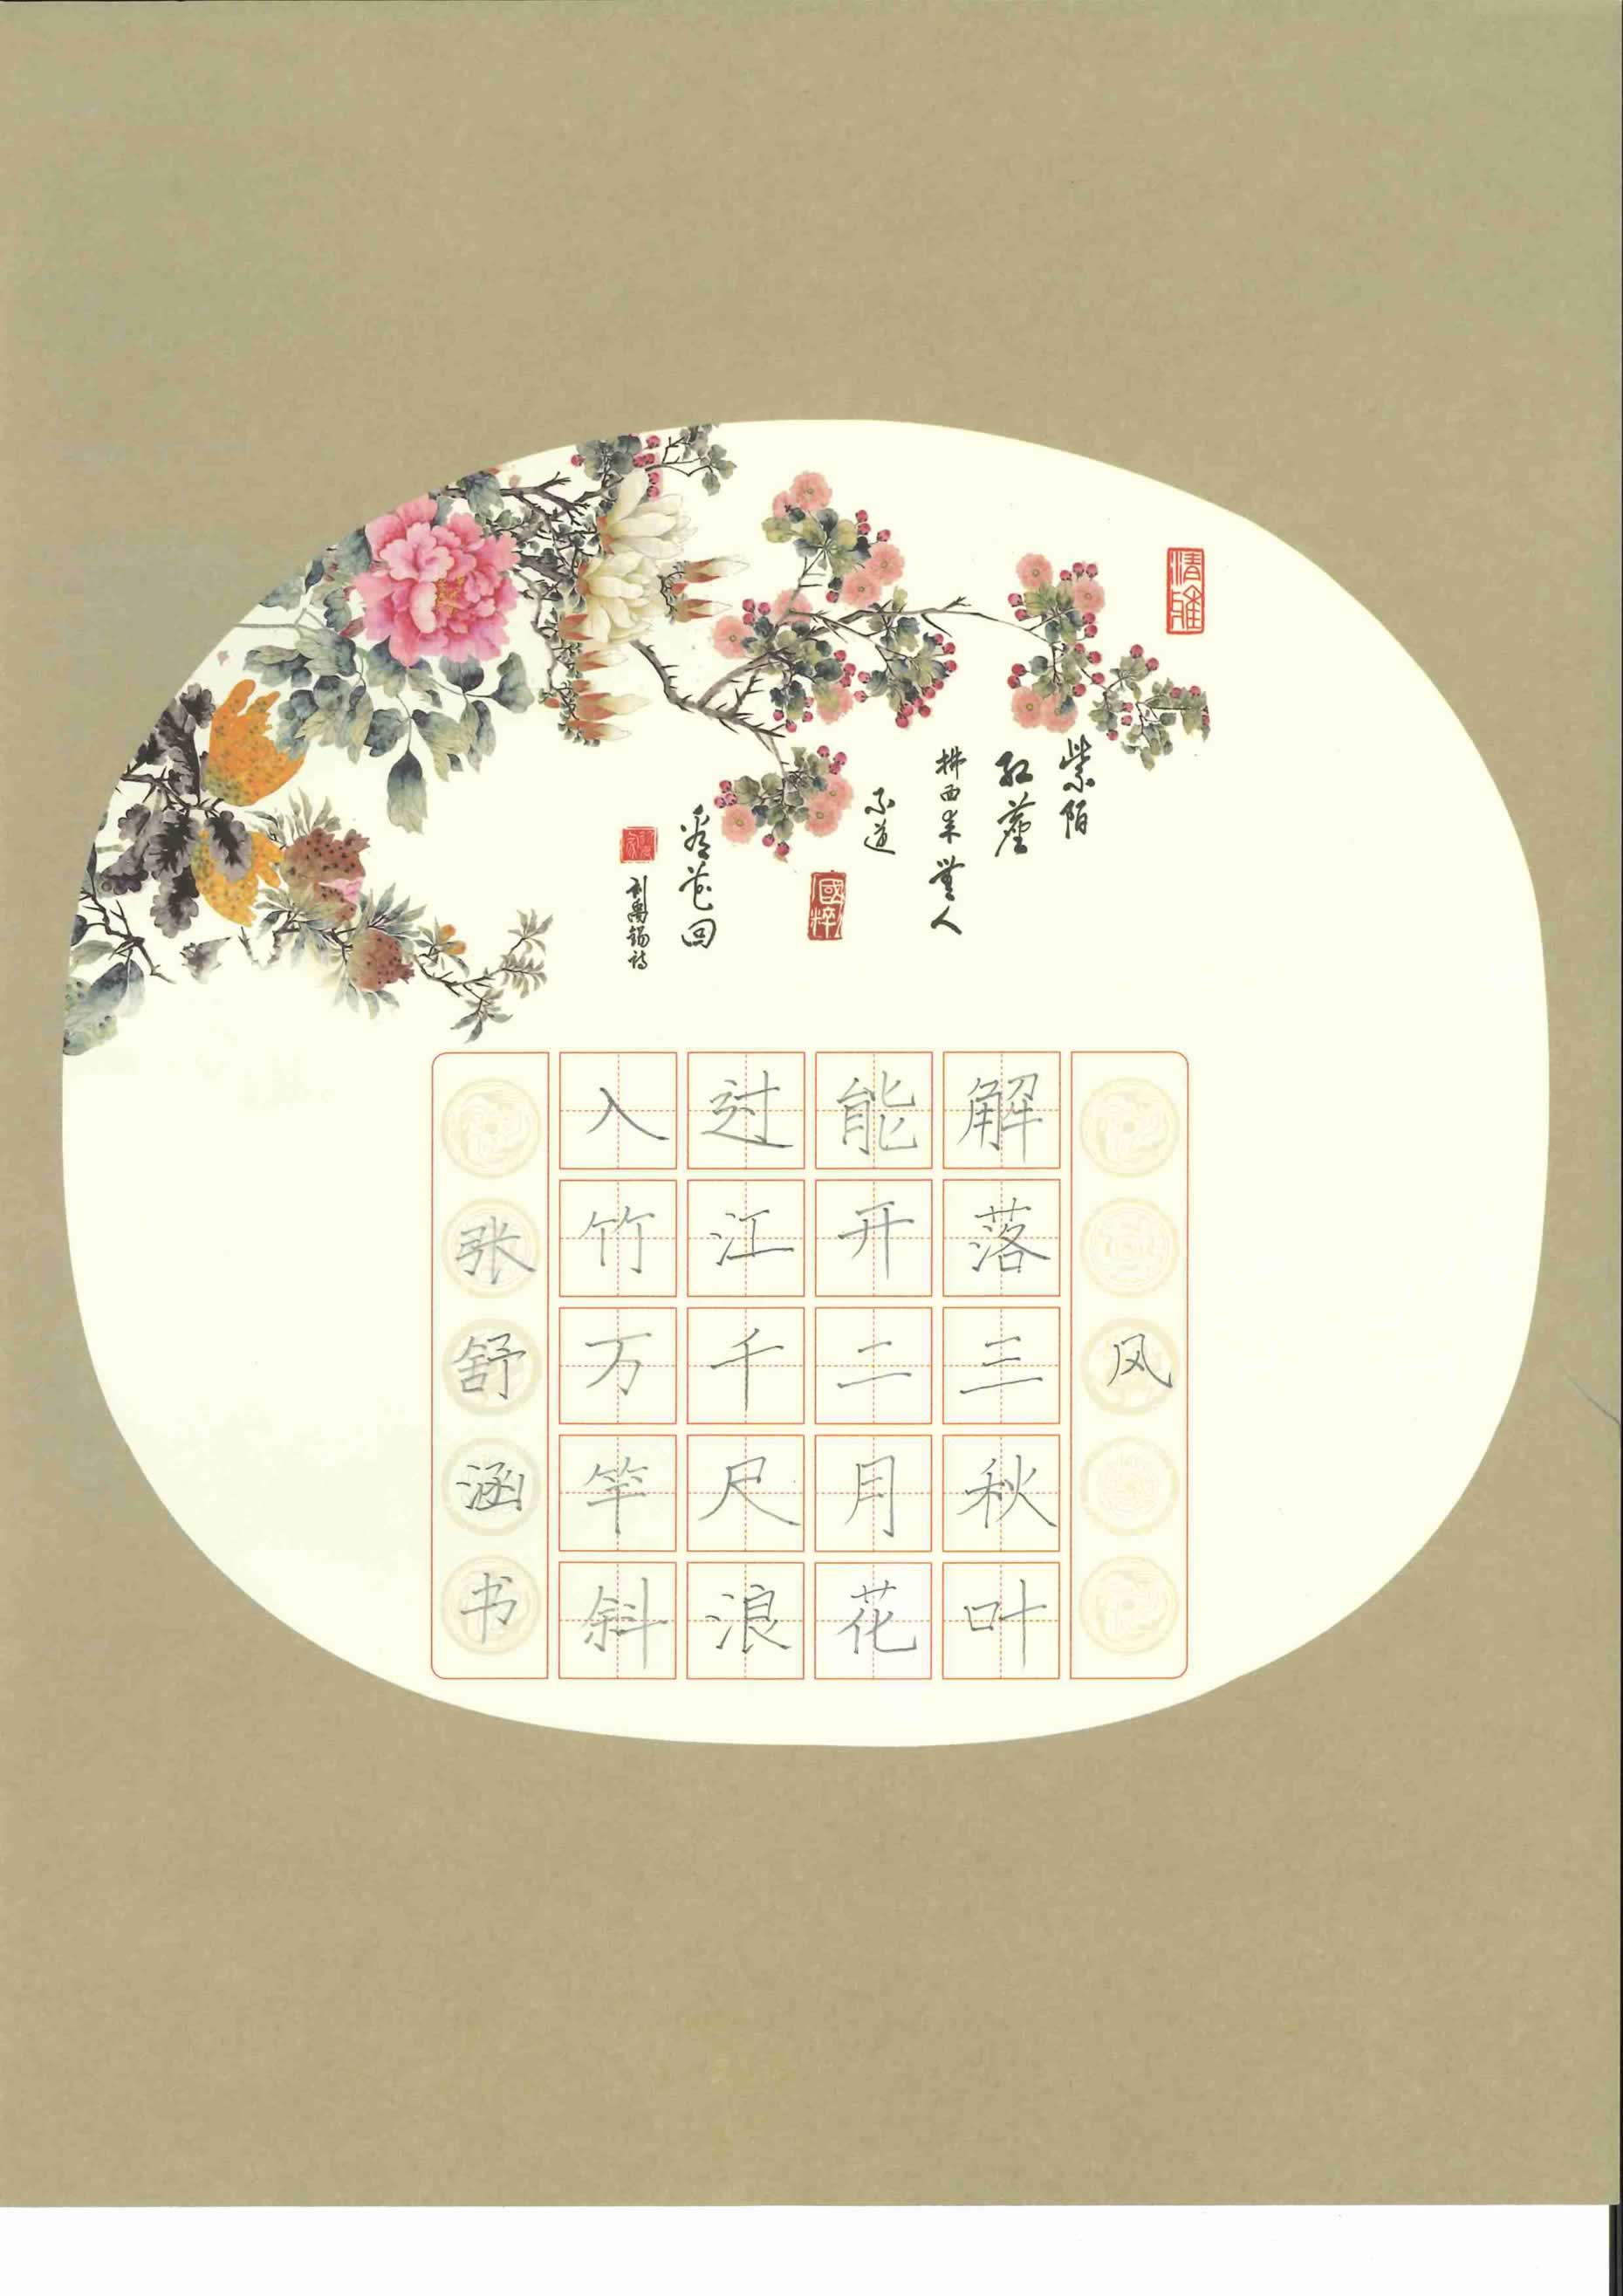 清雅
紫陌
红尘
拂面来无人
不道
國粹
看花回
刘禹锡诗
风
解落三秋叶
能开二月花
过江千尺浪
入竹万竿斜
张舒涵书